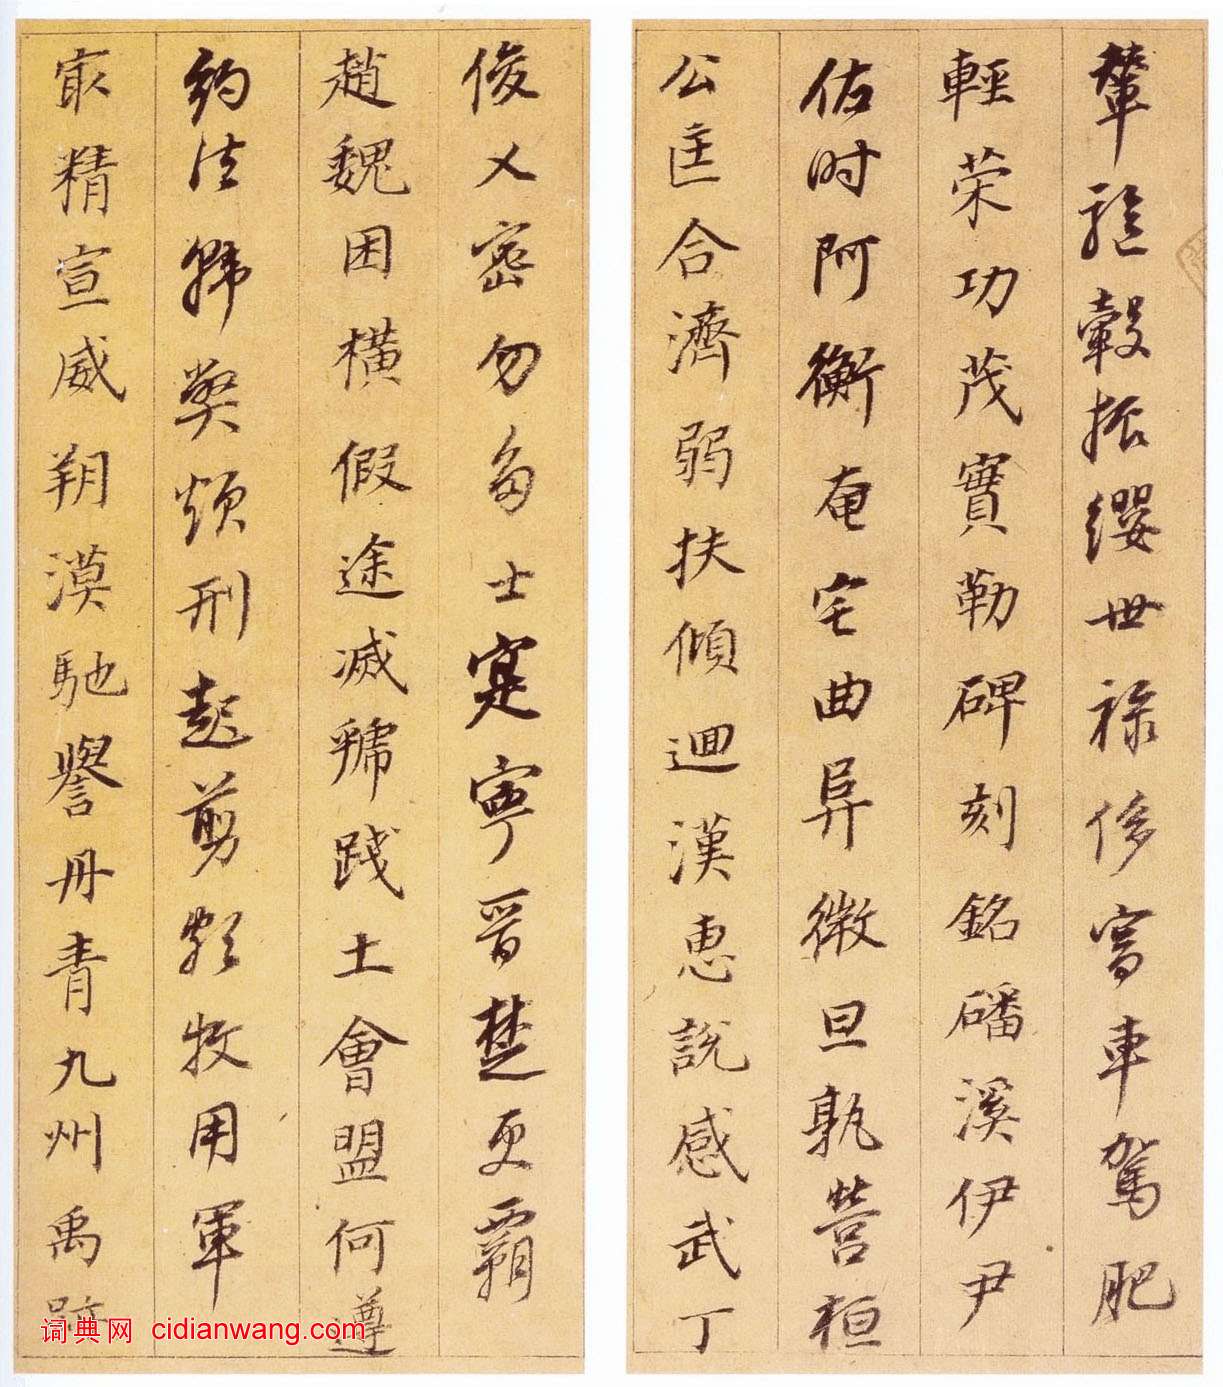 輦驅轂振纓世祿侈富車駕肥
輕荣功茂實勒碑刻銘磻溪伊尹
佐时阿衡奄宅曲阜微旦孰营桓
公匡合濟弱扶傾迴漢惠説感武丁
俊乂密勿多士寔寧晋楚更覇
趙魏困横假途滅虢踐土會盟何遵
約法韩弊煩刑起剪頗牧用軍
最精宣威朔漠馳譽丹青九州禹跡
词典网 cidianwang.com